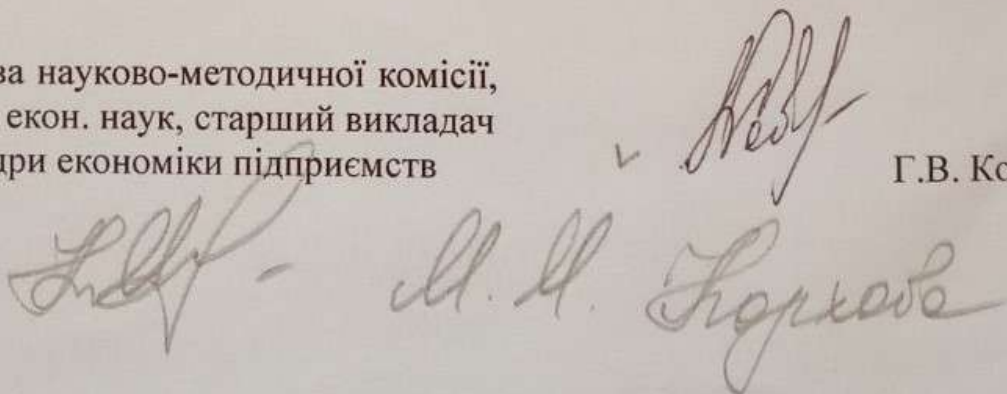 ва науково-методичної комісії,
екон. наук, старший викладач
дри економіки підприємств
Г.В. Ко
М. М.